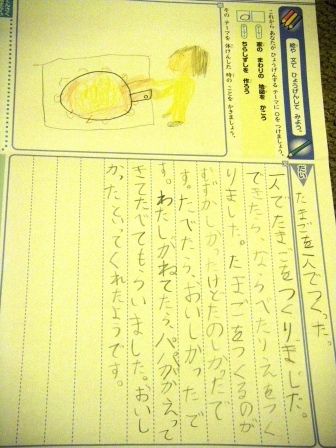 絵や 文で ひょうげんして みよう。
これから あなたが ひょうげんする テーマに ○を つけましょう。
家の まわりの 地図を かこう
ちらしずしを 作ろう
テーマを 体けんした 時の ことを かきましょう。
だい
たまごを一人でつくった。
一人でたまごをつくりました。
できたら、ならべたりえをつく
りました。たまごをつくるのが
むずかしかったけどたのしかったで
す。たべたら、おいしかったで
す。わたしがねてたら、パパがかえって
きてたべてもらいました。おいし
かったといってくれたようです。